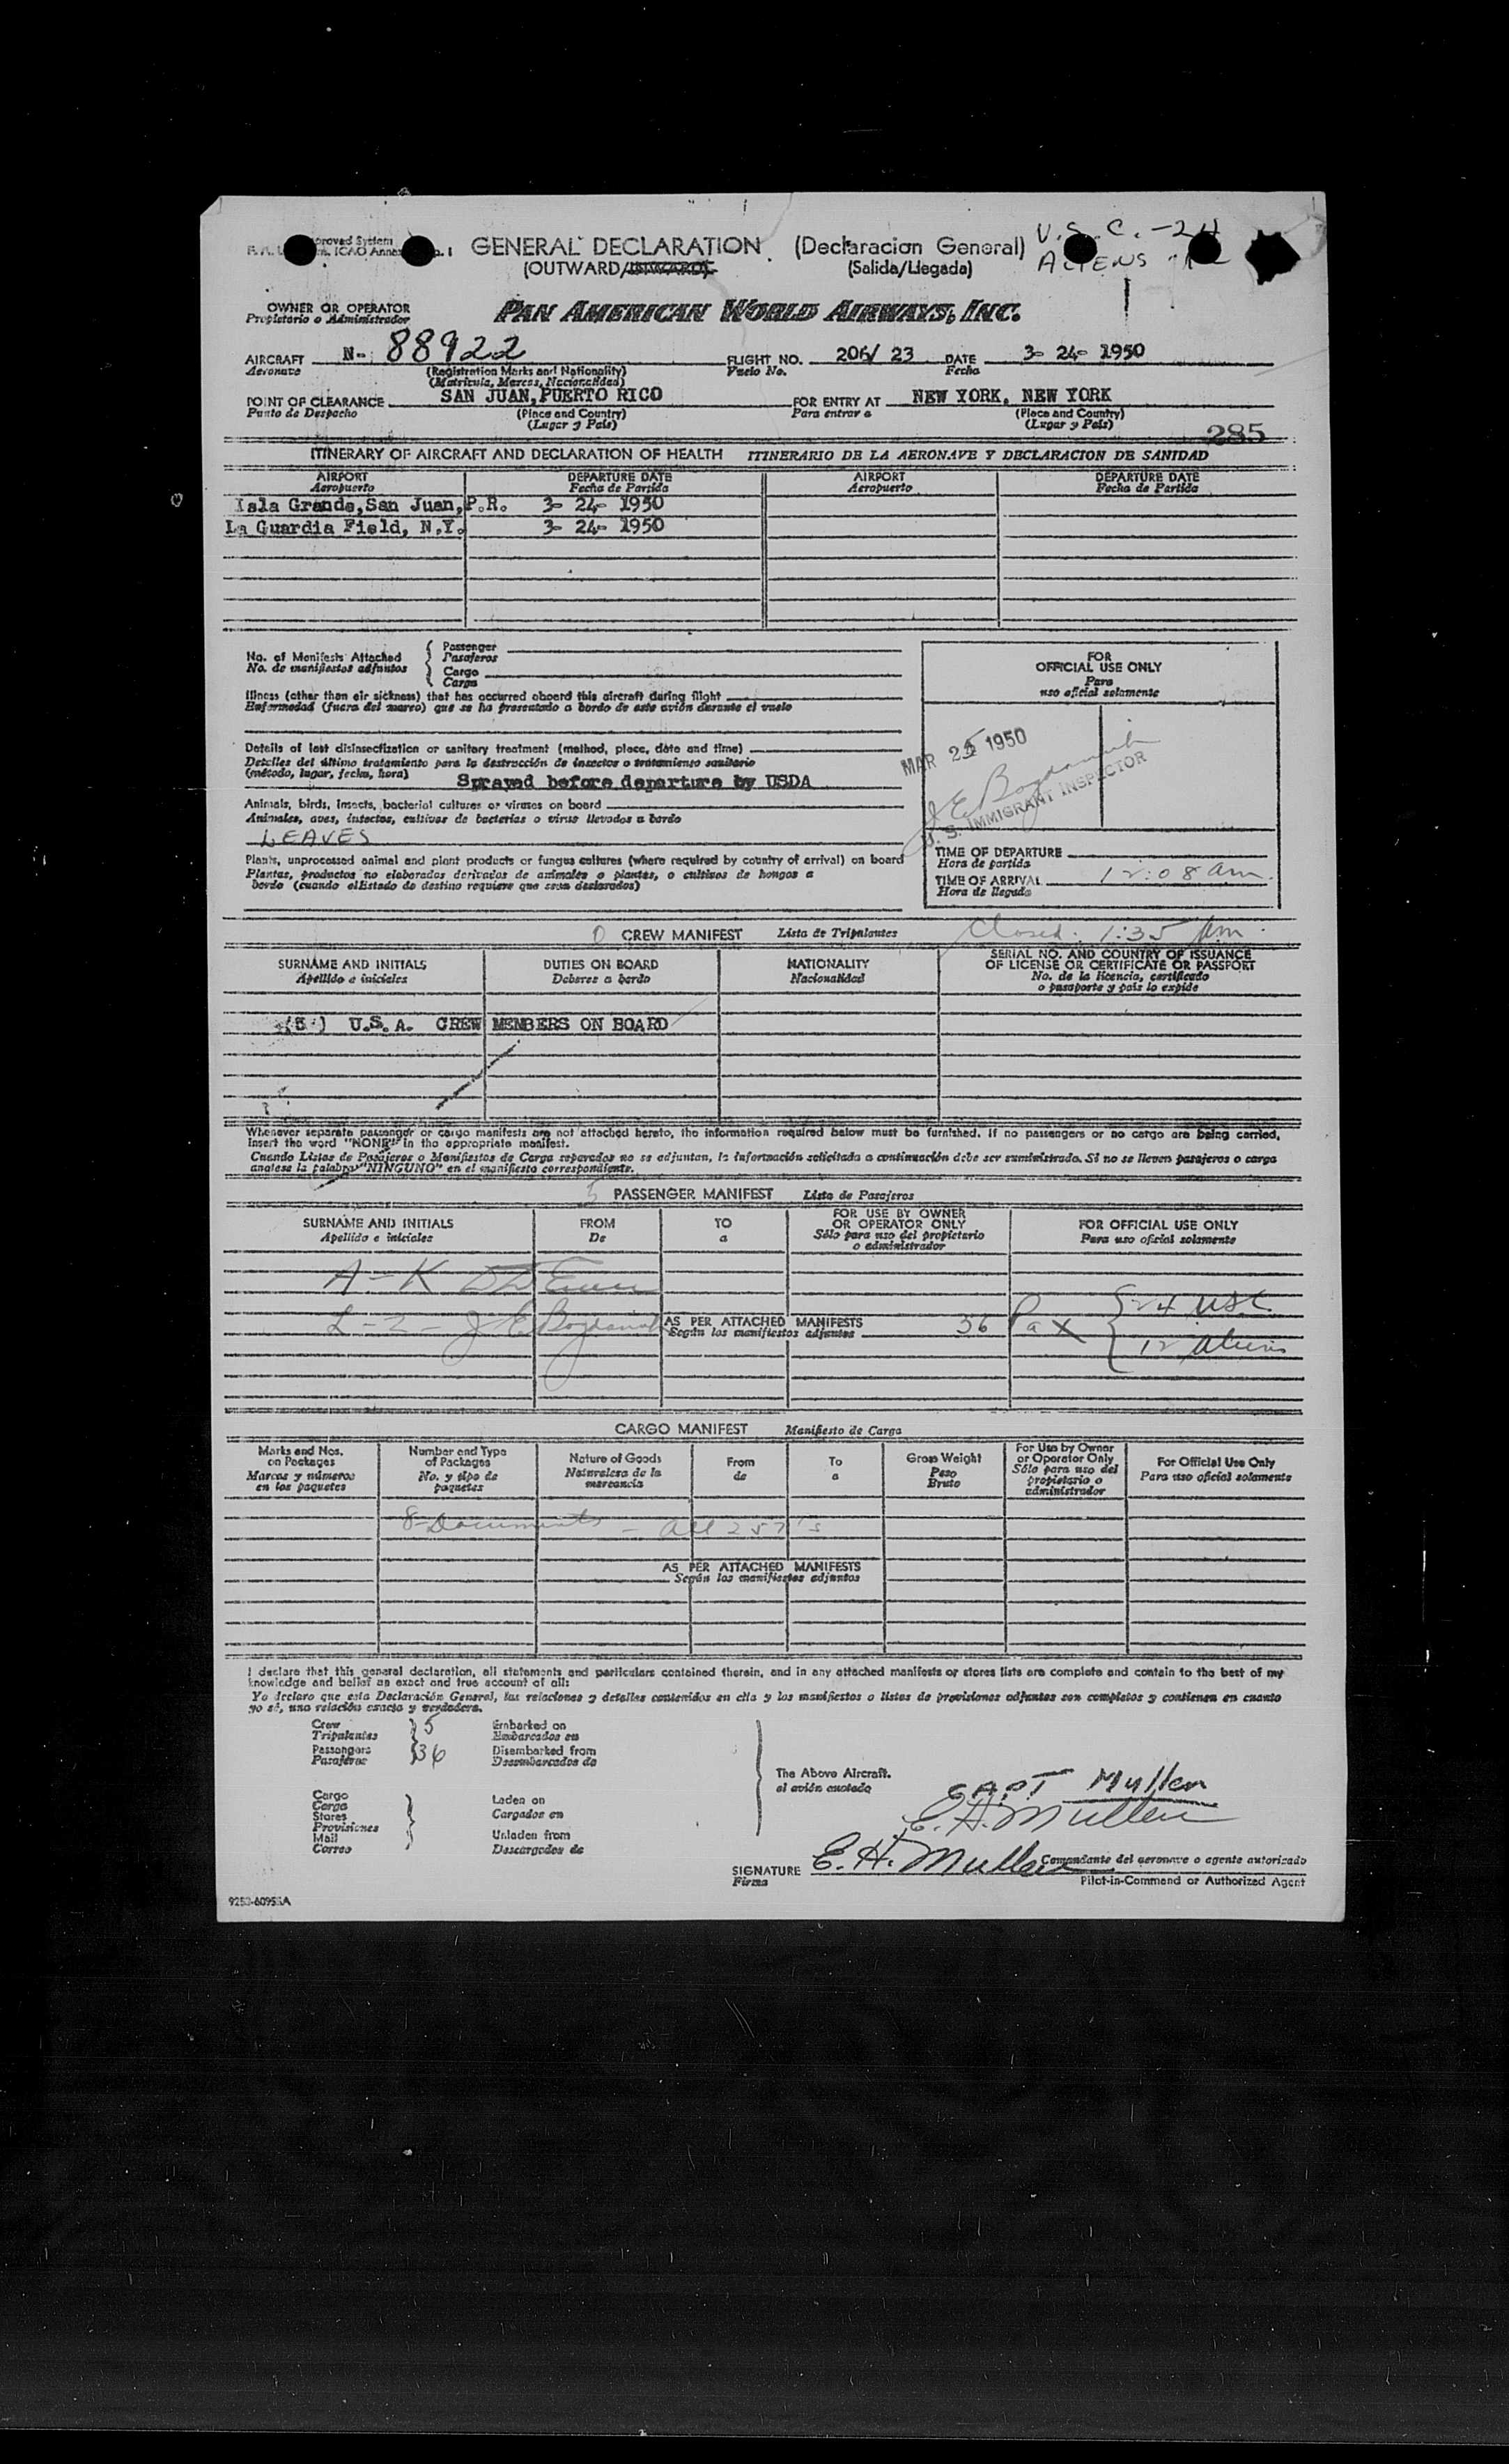 GENERAL DECLARATION (Declaracion General)
(OUTWARD/INWARD) (Salida/Llegada)
U.S.C. - 24
ALIENS
OWNER OR OPERATOR
Propietario o Administrador
PAN AMERICAN WORLD AIRWAYS, INC.
AIRCRAFT N- 88922 FLIGHT NO. 206/ 23 DATE 3- 24- 1950
Aeronave (Registration Marks and Nationality) Vuelo No. Fecha
(Matricula, Marcas, Nacionalidad)
POINT OF CLEARANCE SAN JUAN, PUERTO RICO FOR ENTRY AT NEW YORK, NEW YORK
Punto de Despacho (Place and Country) Para entrar a (Place and Country)
(Lugar y País) (Lugar y País)
285
ITINERARY OF AIRCRAFT AND DECLARATION OF HEALTH ITINERARIO DE LA AERONAVE Y DECLARACION DE SANIDAD
AIRPORT DEPARTURE DATE AIRPORT DEPARTURE DATE
Aeropuerto Fecha de Partida Aeropuerto Fecha de Partida
Isla Grande, San Juan, P.R. 3- 24- 1950
La Guardia Field, N.Y. 3- 24- 1950
No. of Manifests Attached
No. de manifiestos adjuntos
Passenger
Pasajeros
Cargo
Carga
FOR
OFFICIAL USE ONLY
Para
uso oficial solamente
Illness (other than air sickness) that has occurred aboard this aircraft during flight
Enfermedad (fuera del mareo) que se ha presentado a bordo de este avión durante el vuelo
Details of last disinsectization or sanitary treatment (method, place, date and time)
Detalles del último tratamiento para la destrucción de insectos o tratamiento sanitario
(método, lugar, fecha, hora)
Sprayed before departure by USDA
MAR 25 1950
J E Bogdanik
U. S. IMMIGRANT INSPECTOR
Animals, birds, insects, bacterial cultures or viruses on board
Animales, aves, insectos, cultivos de bacterias o virus llevados a bordo
LEAVES
Plants, unprocessed animal and plant products or fungus cultures (where required by country of arrival) on board
Plantas, productos no elaborados derivados de animales o plantas, o cultivos de hongos a
bordo (cuando el Estado de destino requiere que sean declarados)
TIME OF DEPARTURE
Hora de partida
TIME OF ARRIVAL 12:08 am.
Hora de llegada
Closed: 1:35 am.
0 CREW MANIFEST Lista de Tripulantes
SURNAME AND INITIALS DUTIES ON BOARD NATIONALITY SERIAL NO. AND COUNTRY OF ISSUANCE
OF LICENSE OR CERTIFICATE OR PASSPORT
Apellido e iniciales Deberes a bordo Nacionalidad No. de la licencia, certificado
o pasaporte y país lo expide
(5) U.S.A. CREW MEMBERS ON BOARD
Whenever separate passenger or cargo manifests are not attached hereto, the information required below must be furnished. If no passengers or no cargo are being carried,
insert the word "NONE" in the appropriate manifest.
Cuando Listas de Pasajeros o Manifiestos de Carga separados no se adjuntan, la información solicitada a continuación debe ser suministrada. Si no se lleven pasajeros o carga
anótese la palabra "NINGUNO" en el manifiesto correspondiente.
PASSENGER MANIFEST Lista de Pasajeros
SURNAME AND INITIALS FROM TO FOR USE BY OWNER
OR OPERATOR ONLY FOR OFFICIAL USE ONLY
Apellido e iniciales De a Sólo para uso del propietario
o administrador Para uso oficial solamente
A - K
L - Z - J E Bogdanik
AS PER ATTACHED MANIFESTS
Según los manifiestos adjuntos
36 Pax { 24 USC
12 aliens
CARGO MANIFEST Manifiesto de Carga
Marks and Nos.
on Packages
Marcas y números
en los paquetes
Number and Type
of Packages
No. y tipo de
paquetes
Nature of Goods
Naturaleza de la
mercancía
From
de
To
a
Gross Weight
Peso
Bruto
For Use by Owner
or Operator Only
Sólo para uso del
propietario o
administrador
For Official Use Only
Para uso oficial solamente
8 Documents - all 257's
AS PER ATTACHED MANIFESTS
Según los manifiestos adjuntos
I declare that this general declaration, all statements and particulars contained therein, and in any attached manifests or stores lists are complete and contain to the best of my
knowledge and belief an exact and true account of all:
Yo declaro que esta Declaración General, las relaciones y detalles contenidos en ella y los manifiestos o listas de provisiones adjuntos son completos y contienen en cuanto
yo sé, una relación exacta y verdadera.
Crew
Tripulantes
5
Embarked on
Embarcados en
Passengers
Pasajeros
36
Disembarked from
Desembarcados de
Cargo
Carga
Stores
Provisiones
Mail
Correo
Laden on
Cargados en
Unladen from
Descargados de
The Above Aircraft.
el avión anotado
CAPT Mullen
E.H. Mullen
SIGNATURE E. H. Mullen
Firma
Comandante del aeronave o agente autorizado
Pilot-in-Command or Authorized Agent